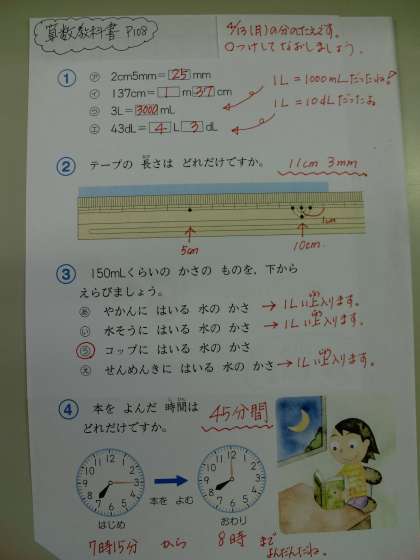 算数教科書 P108
4/13(月)の分のこたえです。
○つけしてなおしましょう。
① ㋐ 2cm5mm=25mm
㋑ 137cm=1m37cm
㋒ 3L=3000mL
㋓ 43dL=4L3dL
1L=1000mLだったね!
1L=10dLだったよ。
② テープの 長さは どれだけですか。
なが
11cm 3mm
1cm
5cm
10cm
③ 150mLくらいの かさの ものを、下から
えらびましょう。
あ やかんに はいる 水の かさ → 1L以上入ります。
い 水そうに はいる 水の かさ → 1L以上入ります。
う コップに はいる 水の かさ
え せんめんきに はいる 水の かさ → 1L以上入ります。
④ 本を よんだ 時間は
じかん
どれだけですか。
45分間
はじめ
本を よむ
おわり
7時15分 から 8時 まで
よんだんだね。